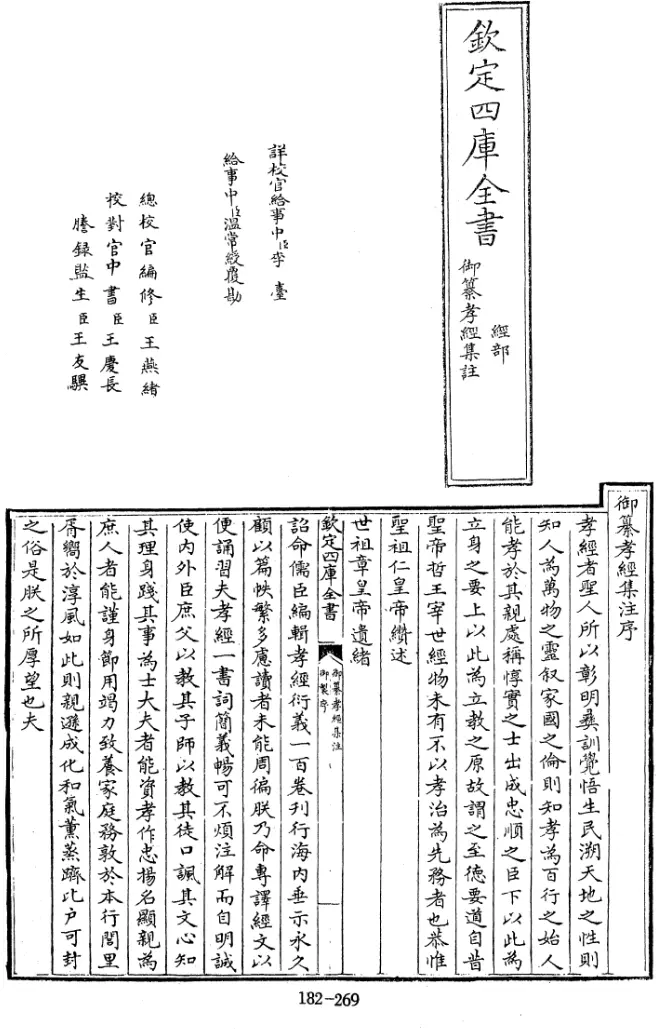 欽定四庫全書
經部
御纂孝經集註
詳校官給事中臣李臺
給事中臣溫常綬覆勘
總校官編修臣王燕緒
校對官中書臣王慶長
謄録監生臣王友騏
御纂孝經集注序
孝經者聖人所以彰明彝訓覺悟生民溯天地之性則
知人為萬物之靈叙家國之倫則知孝為百行之始人
能孝於其親處稱惇實之士出成忠順之臣下以此為
立身之要上以此為立教之原故謂之至德要道自昔
聖帝哲王宰世經物未有不以孝治為先務者也恭惟
聖祖仁皇帝纘述
世祖章皇帝遺緒
欽定四庫全書
御纂孝經集注
御製序
詔命儒臣編輯孝經衍義一百卷刊行海内垂示永久
顧以篇帙繁多慮讀者未能周徧朕乃命專譯經文以
便誦習夫孝經一書詞簡義暢可不煩注解而自明誠
使内外臣庶父以教其子師以教其徒口諷其文心知
其理身踐其事為士大夫者能資孝作忠揚名顯親為
庶人者能謹身節用竭力致養家庭務敦於本行閭里
胥嚮於淳風如此則親遜成化和氣薰蒸躋比户可封
之俗是朕之所厚望也夫
182-269